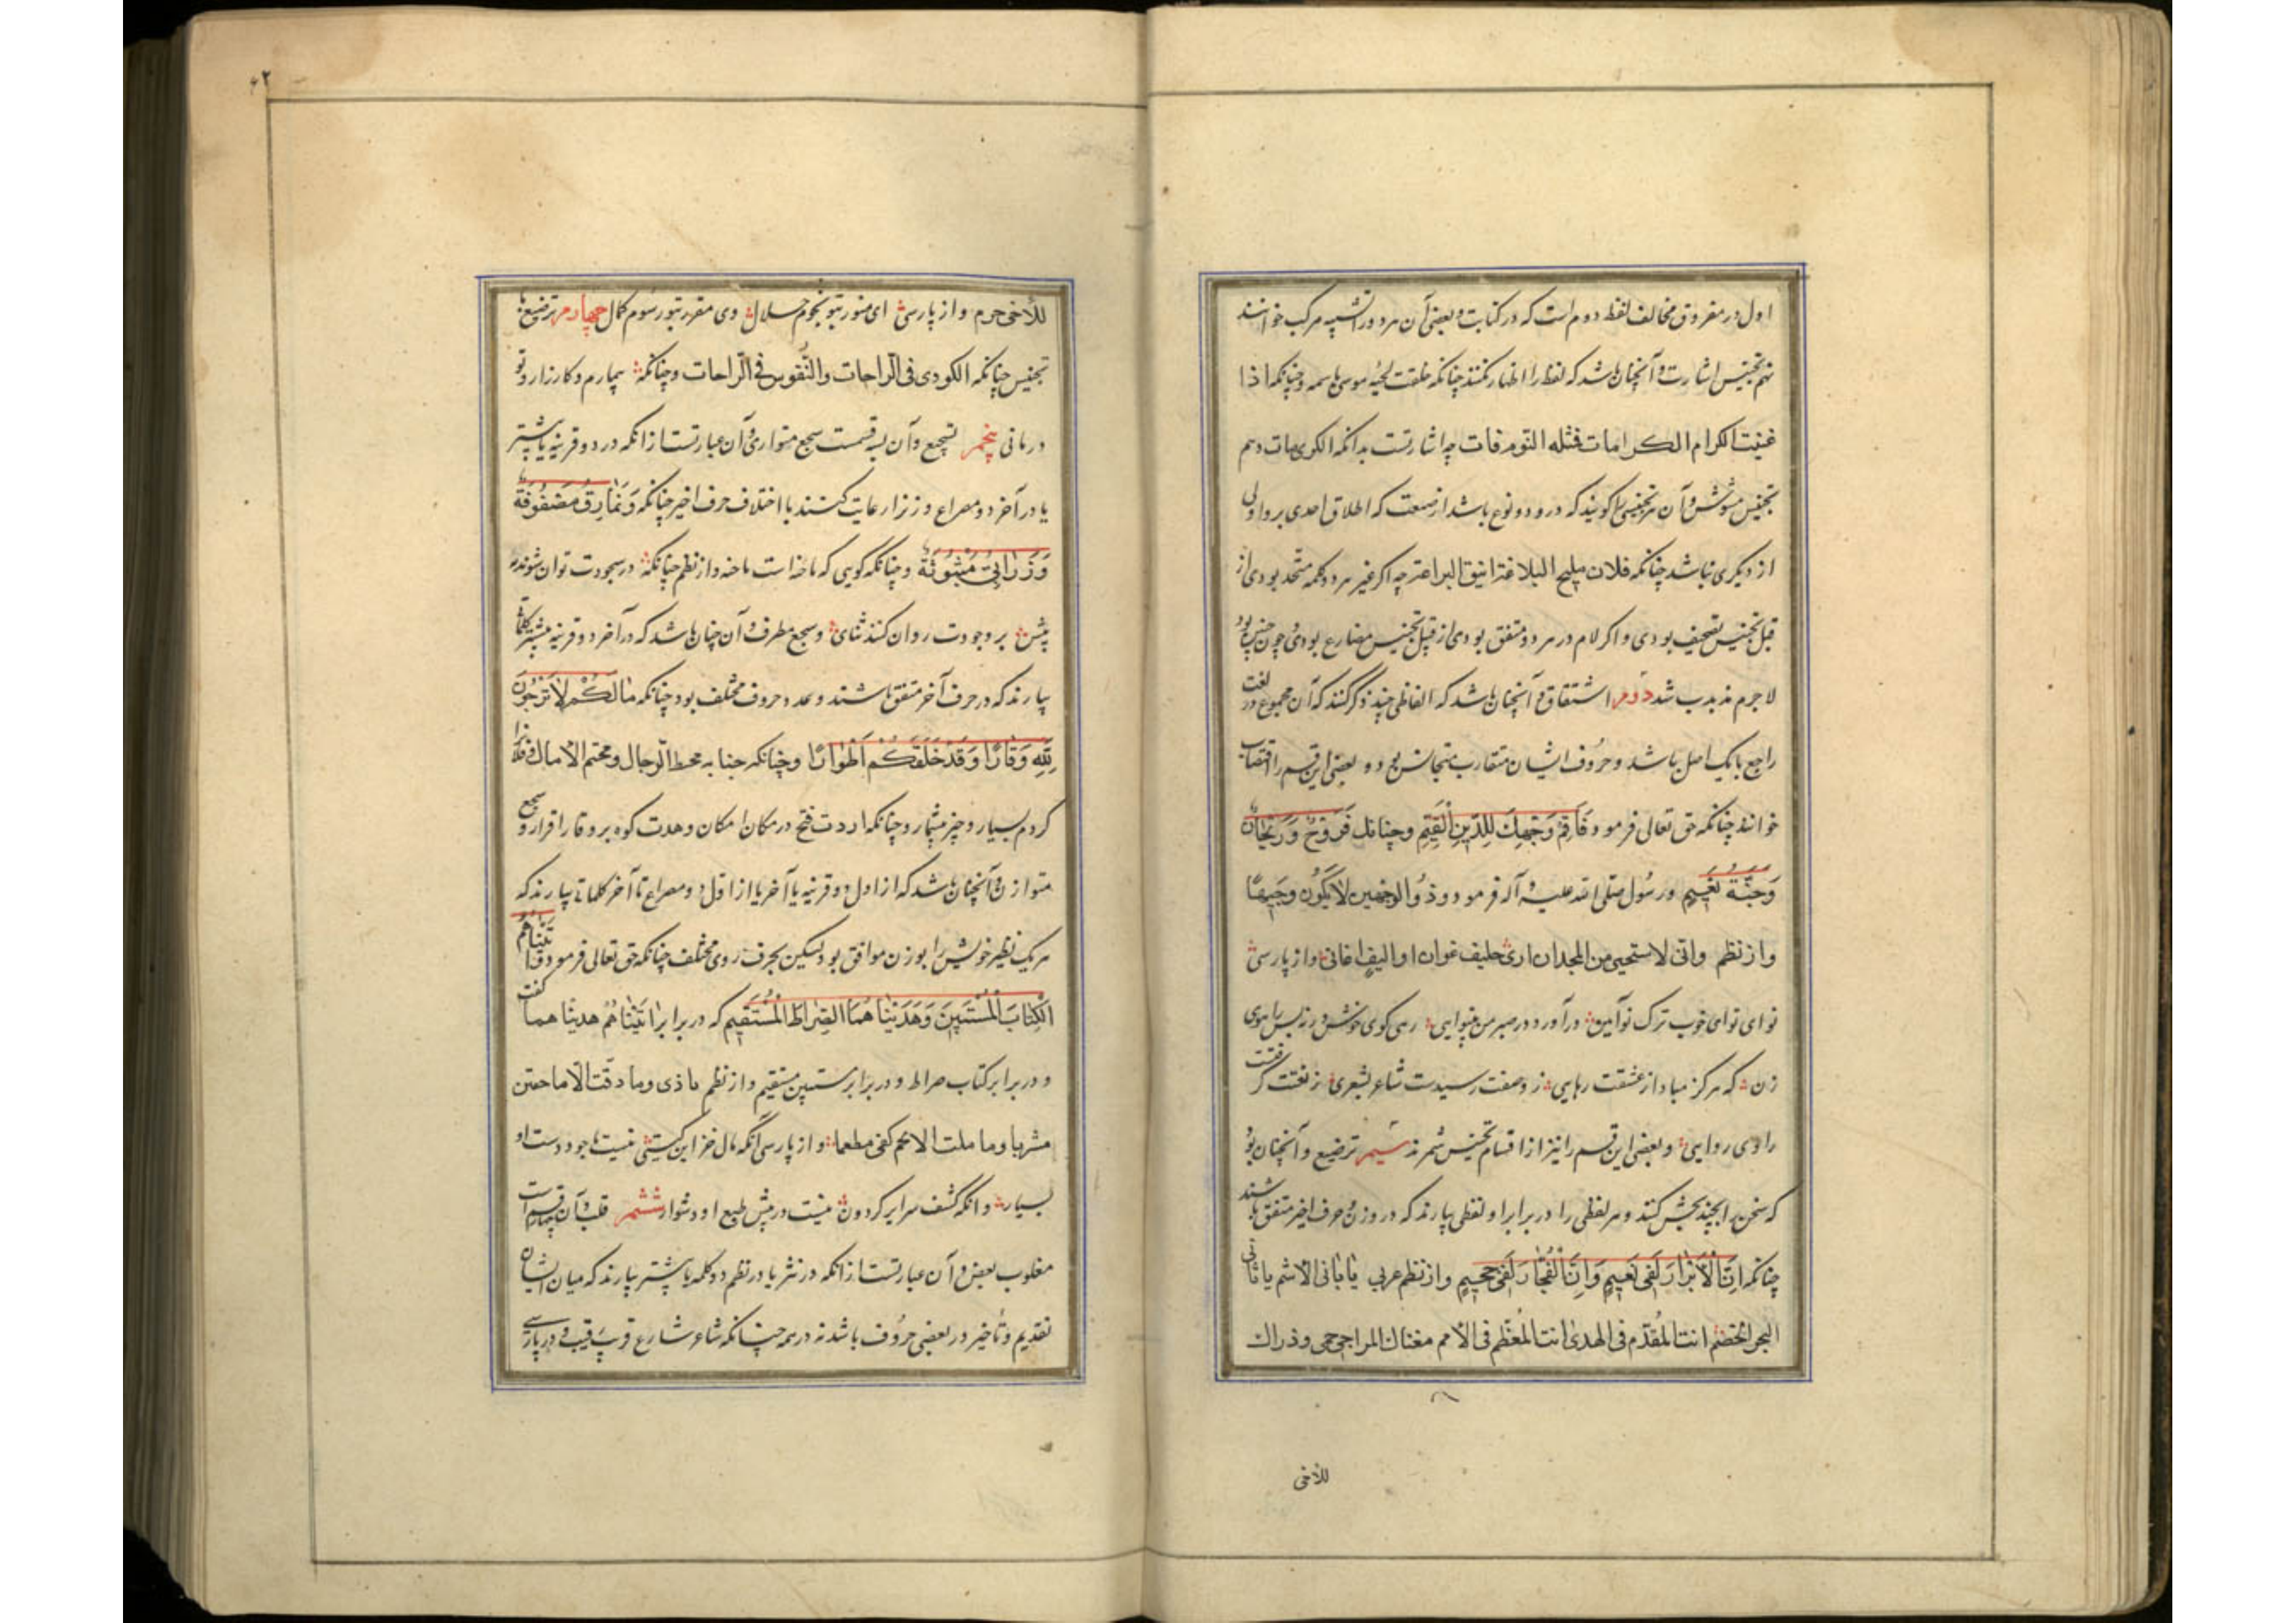 اول در مفروق مخالف لفظ دوم است که در کتابت و بعضی آن هر دو را تشبیه مرکب خوانند
نهم تجنیس اشارت و آنچنان باشد که لفظ را اظهار نکنند چنانکه خلقت لحیه موسی باسمه و چنانکه اذا
غنیت الکرام الکرامات فثله النوم فات چه اشارتست بدانکه الکری مات دهم
تجنیس مشوش و آن هر تجنیسی را کویند که درو دو نوع باشد از صنعت که اطلاق احدی برو اولی
از دیکری نباشد چنانکه فلان ملیح البلاغة انیق البراعة چه اکر غیر هر دو کلمه متحد بودی از
قبل تجنیس تصحیف بودی و اکر لام در هر دو متفق بودی از قبل تجنیس مضارع بودی چون چنین بود
لاجرم مذبذب شد دوم اشتقاق و آنچنان باشد که الفاظی چند ذکر کنند که آن مجموع در لغت
راجع با یک اصل باشد و حروف ایشان متقارب متجانس بود و بعضی این قسم را اقتضاب
خوانند چنانکه حق تعالی فرمود فَاَقِمْ وَجْهَكَ لِلدّینِ الْقَیِّمِ و چنانک فَرَوْحٌ وَرَیْحانٌ
وَجَنَّةُ نَعِیمٍ و رسول صلی الله علیه و آله فرمود و ذو الوجهین لا یکون وجیها
و از نظم وانی لاستحیی من المجد ان اری حلیف غوان او الیف اغانی و از پارسی
نوای نوای خوب ترک نوآیین در آورد در صبر من بینوایی رهی کوی خوش ورنه بس راهوی
زن که هرکز مباد از عشقت رهایی ز وصفت رسیدست شاعر بشعری ز نعتت کرفتست
راوی روایی و بعضی این قسم را نیز از اقسام تجنیس شمرند سیم ترصیع و آنچنان بود
که سخن را بچند بخش کنند و هر لفظی را در برابر او لفظی بیارند که در وزن و حرف اخیر متفق باشند
چنانکه اِنَّ الْاَبْرارَ لَفی نَعیمٍ وَاِنَّ الْفُجّارَ لَفی جَحیمٍ و از نظم عربی یا بانی الاشم یا ثانی
البحر الخضم انت المقدم فی الهدی انت المعظم فی الامم مغناک للراجی حمی و ذراک
للأخی
۶۲
للأخی حرم و از پارسی ای منور بتو نجوم جلال وی مقرر بتو رسوم کمال چهارم ترصیع با
تجنیس چنانکه الکودی فی الراحات والنفوس فی الراحات و چنانکه بیمارم و کارزار و تو
درمانی پنجم تسجیع و آن بسه قسمت سجع متوازی و آن عبارتست از آنکه در دو قرینه یا بیشتر
یا در آخر دو مصراع وزن را رعایت کنند با اختلاف حرف اخیر چنانکه وَنَمارِقُ مَصْفُوفَةٌ
وَزَرابِیُّ مَبْثُوثَةٌ و چنانکه کویی که ماخذ است ماخذ و از نظم چنانکه در سجودت توان شوند
پیش بر وجودت روان کنند ثنای و سجع مطرف و آن چنان باشد که در آخر دو قرینه بیشتر کلماتی
بیارند که در حرف آخر متفق باشند و عدد حروف مختلف بود چنانکه مالَکُمْ لا تَرْجُونَ
لِلّهِ وَقارًا وَقَدْ خَلَقَکُمْ اَطْوارًا و چنانکه جنابه محط الرحال و مخیم الآمال
کردم بسیار و چیز بیشمار و چنانکه اردت فتح در مکان امکان و هدت کوه بر وقار اقرار و سجع
متوازن و آنچنان باشد که از اول دو قرینه یا آخر یا از اول دو مصراع تا آخر کلماتی بیارند که
هر یک نظیر خویش را بوزن موافق بود لیکن بحرف روی مختلف چنانکه حق تعالی فرمود وَآتَیْناهُمَا
الْکِتابَ الْمُسْتَبینَ وَهَدَیْناهُمَا الصِّراطَ الْمُسْتَقیمَ که در برابر آتَیْناهُمْ هدینا هما کفت
و در برابر کتاب صراط و در برابر مستبین مستقیم و از نظم
و از پارسی آنکه مال خزاین کیتی نیست با جود دست او
بسیار و آنکه کشف سرایر کردون نیست در پیش طبع او دشوار ششم قلب و آن چهار قسم است
مقلوب بعض و آن عبارتست از آنکه در نثر یا در نظم دو کلمه یا بیشتر بیارند که میان ایشان
تقدیم و تأخیر در بعضی حروف باشد نه در همه چنانکه شاعر شارع قریب رقیب و در پارسی